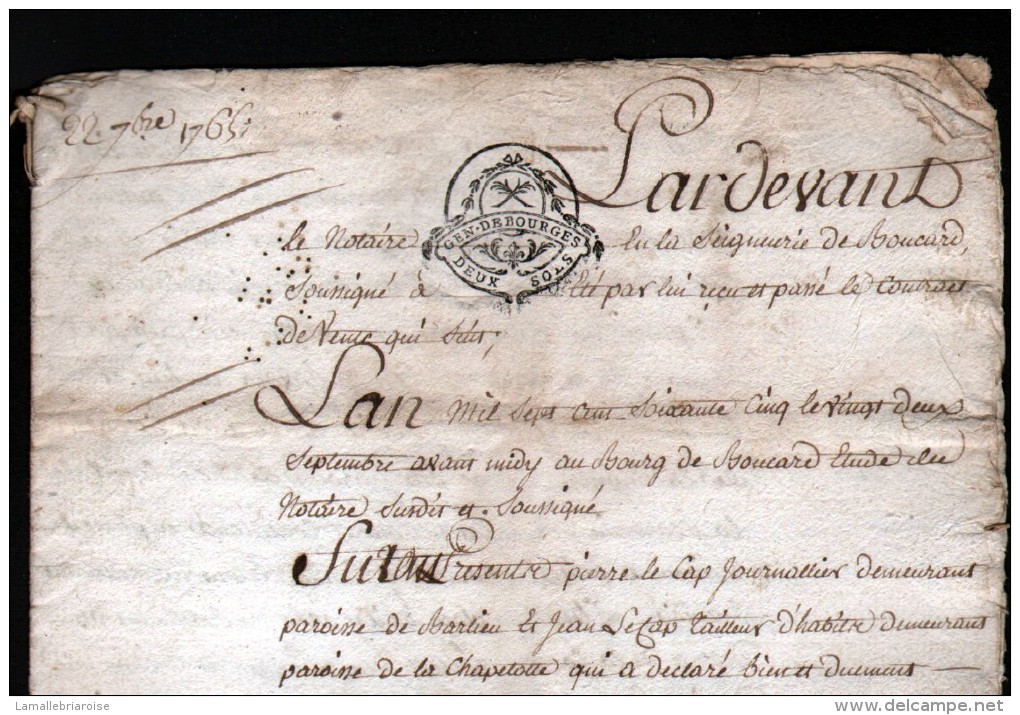 22. 7bre 1765.
Pardevant
le Notaire En la Seigneurie de Boucard,
GEN·DE BOURGES
DEUX SOLS
Soussigné à été par lui reçu et passé le Contrat
de Vente qui suit;
Lan mil sept cent soixante cinq le vingt deux
septembre avant midy au Bourg de Boucard Etude du
Notaire susdit et soussigné
Furent Présents pierre le Cap Journallier demeurant
paroisse de Barlieu Et Jean Le Cap tailleur d'habits demeurant
paroisse de la Chapelotte qui a declaré bien et duement
Lamallebriaroise
delcampe.net